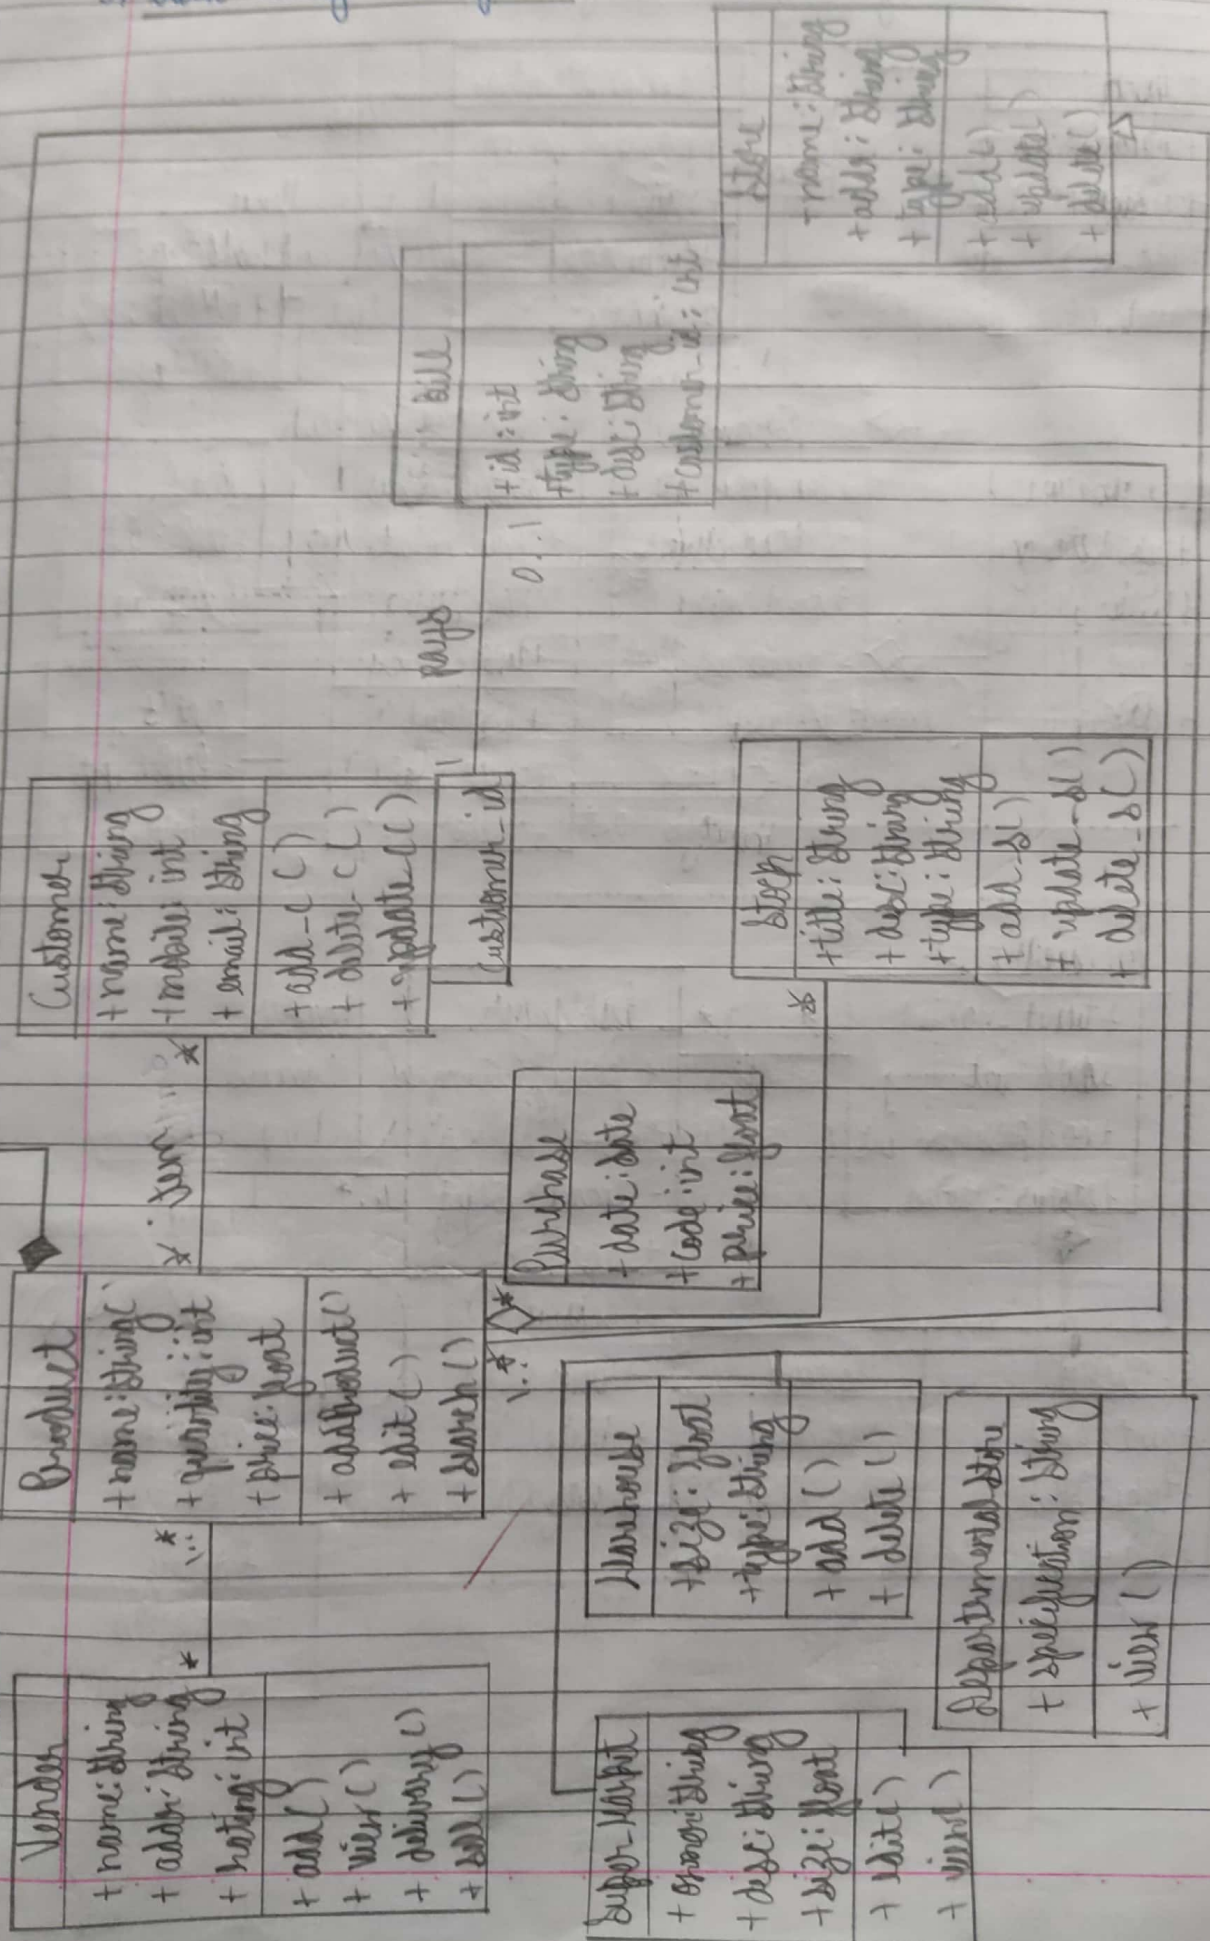 Vender
+ name: String
+ addr: String
+ rating: int
+ add()
+ view()
+ delivary()
+ sell()
*
1..*
Product
+ name: String(
+ quantity: int
+ price: float
+ addProduct()
+ edit()
+ search()
* item
*
Customer
+ name: String
+ mobile: int
+ email: String
+ add_C()
+ delete_C()
+ update_C()
Customer_id
1
Pays
0..1
Bill
+ id: int
+ type: String
+ desc: String
+ customer_id: int
Store
+ name: String
+ addr: String
+ type: String
+ add()
+ update)
+ delete()
Purchase
+ date: date
+ code: int
+ price: float
*
1..*
*
Stock
+ title: String
+ desc: String
+ type: String
+ add_s()
+ update_s()
+ delete_s()
Warehouse
+ size: float
+ type: String
+ add()
+ delete()
Super-Markit
+ owner: String
+ desc: String
+ size: float
+ edit()
+ view()
Departmental Store
+ specification: String
+ view()